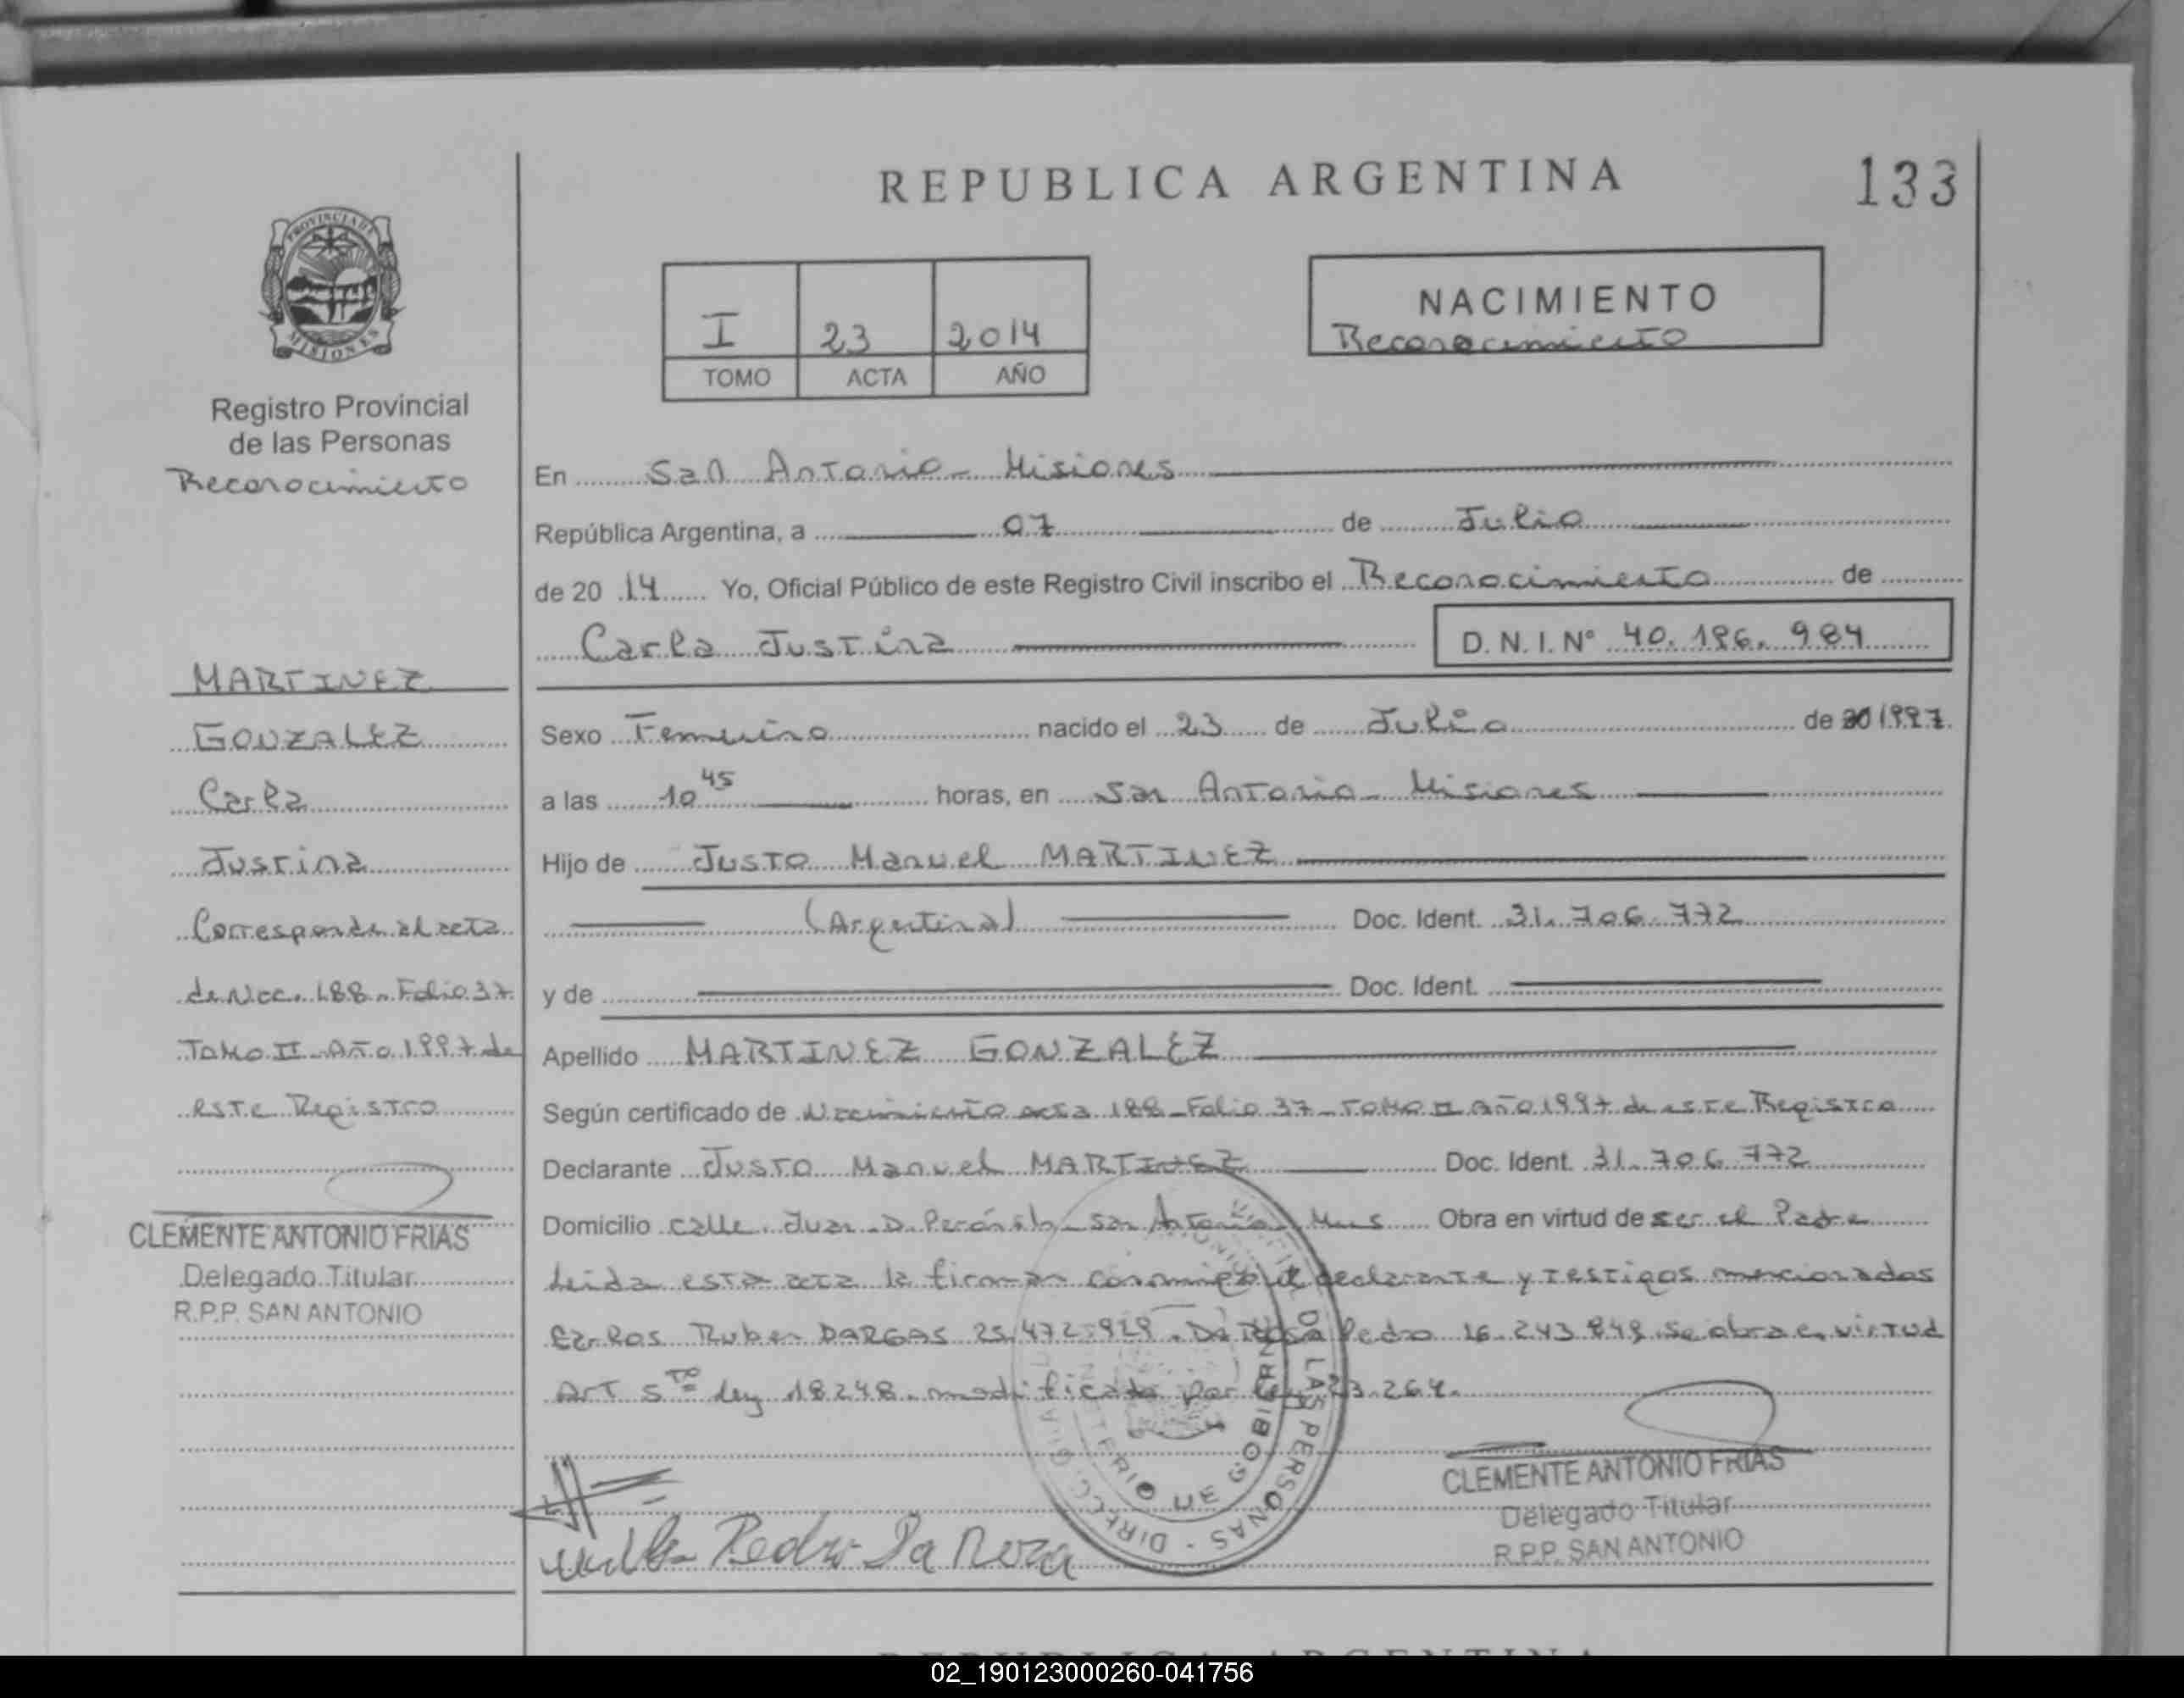 REPUBLICA ARGENTINA
133
PROVINCIA DE
MISIONES
Registro Provincial
de las Personas
Reconocimiento
I 23 2014
TOMO ACTA AÑO
NACIMIENTO
Reconocimiento
En San Antonio - Misiones
República Argentina, a 07 de Julio
de 20 14 Yo, Oficial Público de este Registro Civil inscribo el Reconocimiento de
Carla Justina D. N. I. Nº 40.196.984
Sexo Femenino nacido el 23 de Julio de 20 1997.
a las 10 45 horas, en San Antonio - Misiones
Hijo de Justo Manuel MARTINEZ
(Argentina) Doc. Ident. 31.706.772
y de Doc. Ident.
Apellido MARTINEZ GONZALEZ
Según certificado de Nacimiento acta 188 - Folio 37 - Tomo II Año 1997 de este Registro
Declarante Justo Manuel MARTINEZ Doc. Ident. 31.706.772
Domicilio calle Juan D. Perón s/n - San Antonio Mnes Obra en virtud de ser el Padre
Leida esta acta la firman conmigo el declarante y testigos mencionados
Carlos Ruben DARGAS 25.472.929. Da Rosa Pedro 16.243.849 se obra en virtud
Art 5to ley 18.248. modificada por ley 23.264.
MARTINEZ
GONZALEZ
Carla
Justina
Corresponde al acta
de Nac. 188 - Folio 37
Tomo II Año 1997 de
este Registro
CLEMENTE ANTONIO FRIAS
Delegado Titular
R.P.P. SAN ANTONIO
DE LAS PERSONAS - DIRECC
MINISTERIO DE GOBIERNO
Pedro Da Roza
CLEMENTE ANTONIO FRIAS
Delegado Titular
R.P.P. SAN ANTONIO
REPUBLICA ARGENTINA
02_190123000260-041756